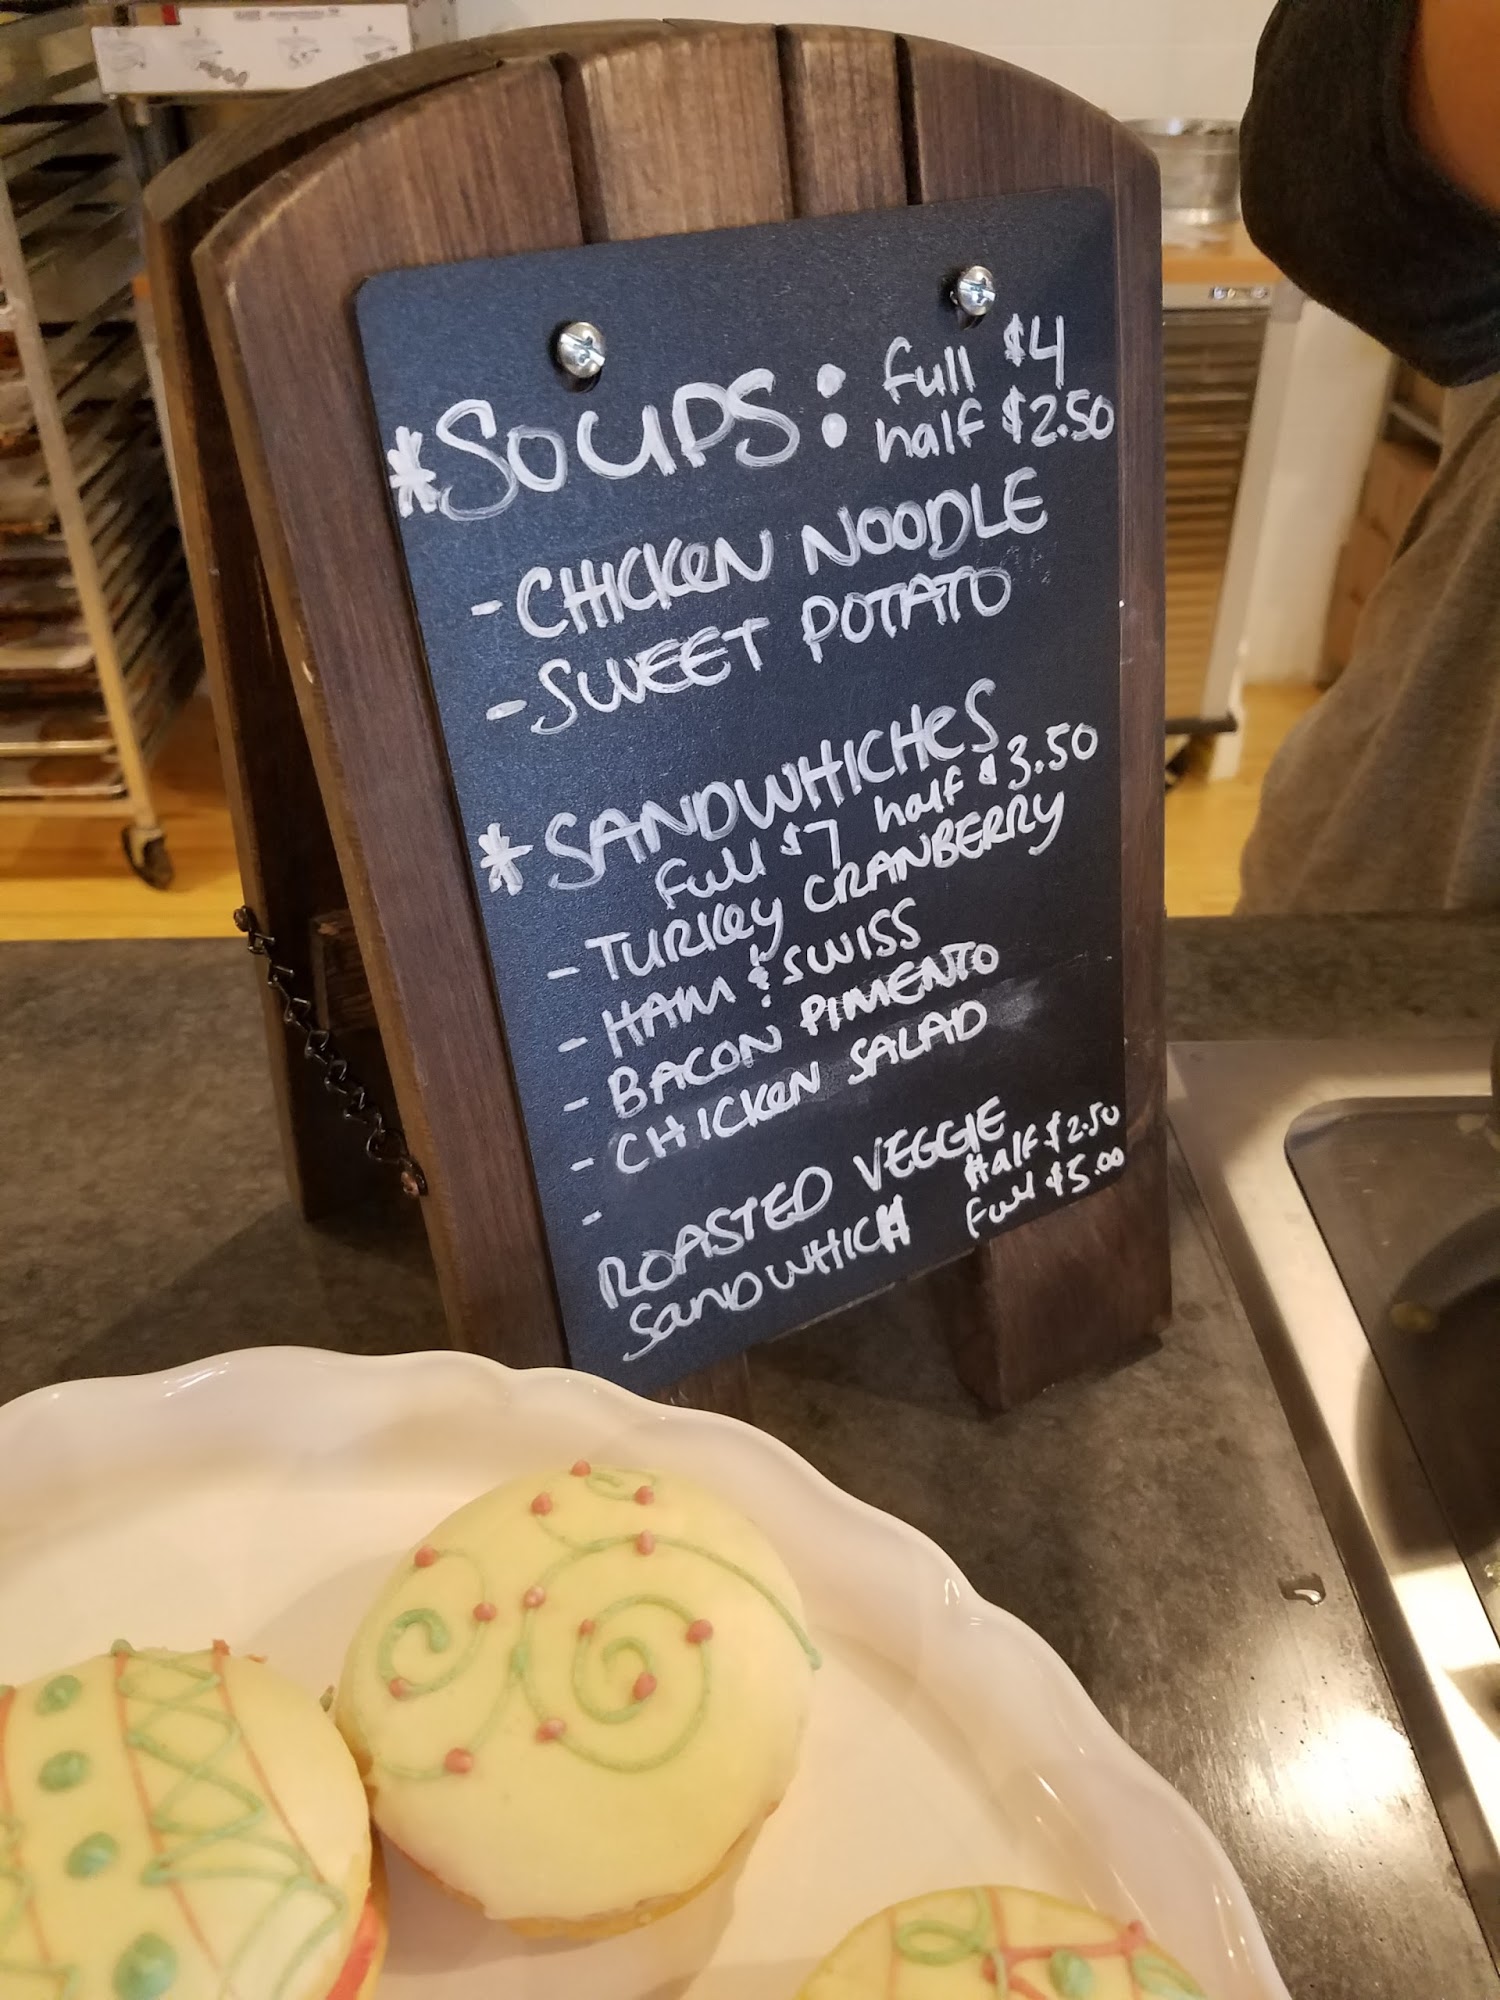 *SOUPS: full $4
half $2.50
- CHICKEN NOODLE
- SWEET POTATO
* SANDWHICHES
full $7 half $3.50
- TURKEY CRANBERRY
- HAM & SWISS
- BACON PIMENTO
- CHICKEN SALAD
-
ROASTED VEGGIE
SANDWHICH
Half $2.50
full $5.00